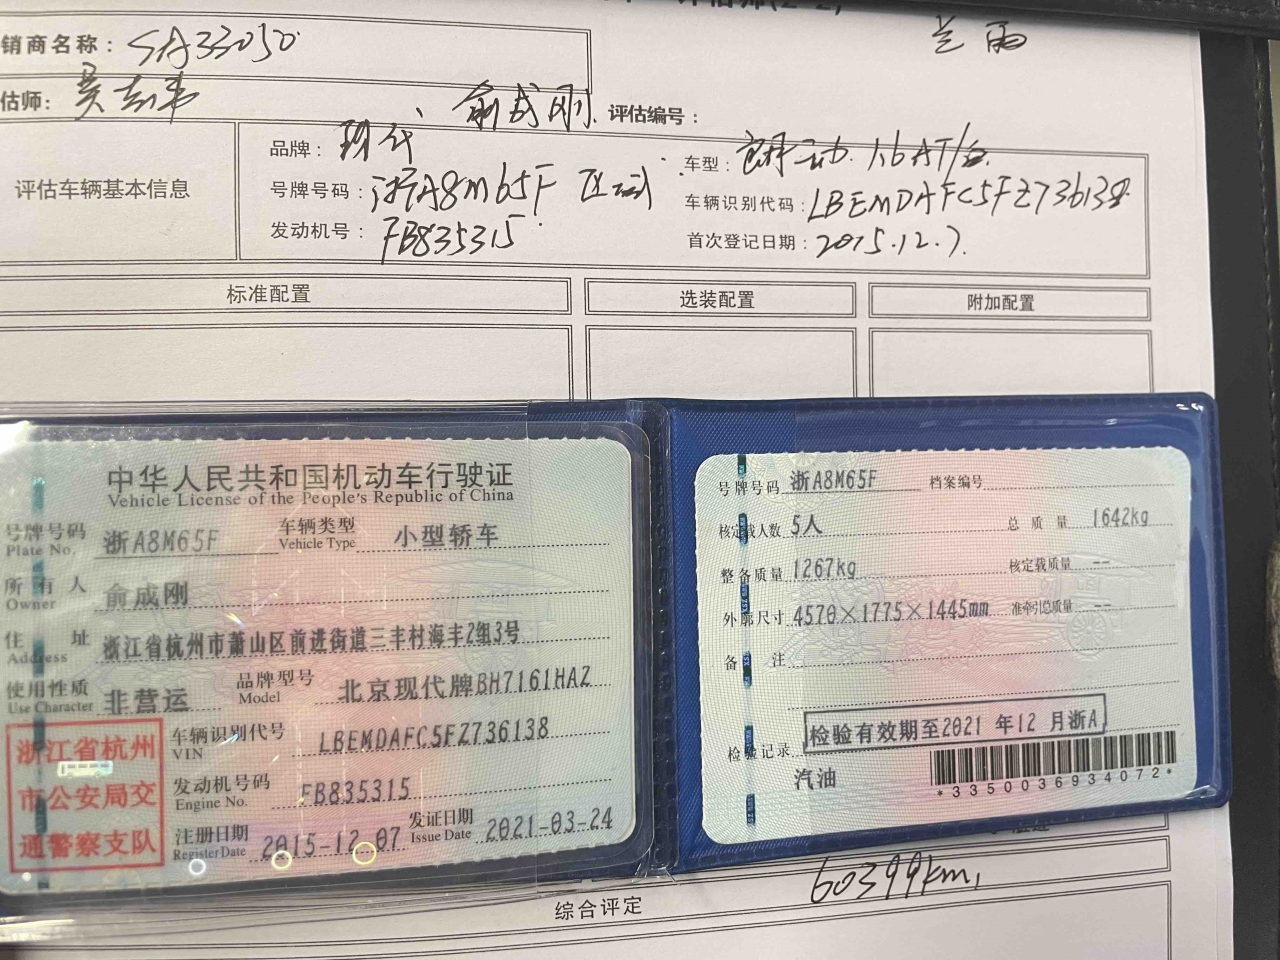 销商名称: SA33050
兰雨
估师:
俞成刚 评估编号:
评估车辆基本信息
品牌: 现代
车型: 朗动 1.6AT/
号牌号码: 浙A8M65F
车辆识别代码: LBEMDAFC5FZ736138
发动机号: FB835315
首次登记日期: 2015.12.7.
标准配置 选装配置 附加配置
中华人民共和国机动车行驶证
Vehicle License of the People's Republic of China
号牌号码 浙A8M65F 车辆类型 小型轿车
Plate No. Vehicle Type
所有人 俞成刚
Owner
住址 浙江省杭州市萧山区前进街道三丰村海丰2组3号
Address
使用性质 非营运 品牌型号 北京现代牌BH7161HAZ
Use Character Model
浙江省杭州市公安局交通警察支队
车辆识别代号 LBEMDAFC5FZ736138
VIN
发动机号码 FB835315
Engine No.
注册日期 2015-12-07 发证日期 2021-03-24
Register Date Issue Date
号牌号码 浙A8M65F 档案编号
核定载人数 5人 总质量 1642kg
整备质量 1267kg 核定载质量 --
外廓尺寸 4570×1775×1445mm 准牵引总质量 --
备注
检验记录 检验有效期至2021年12月浙A
汽油
*3350036934072*
60399km
综合评定